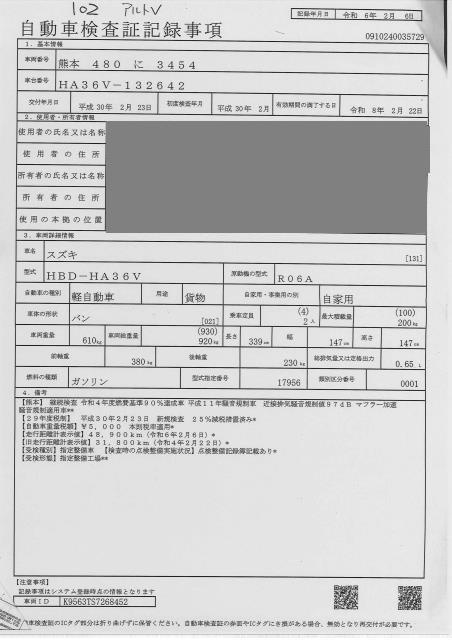 102 アルトV
自動車検査証記録事項
記録年月日 令和 6年 2月 6日
0910240035729
1. 基本情報
車両番号 熊本 480 に 3454
車台番号 HA36V-132642
交付年月日 平成 30年 2月 23日 初度検査年月 平成 30年 2月 有効期間の満了する日 令和 8年 2月 22日
2. 使用者・所有者情報
使用者の氏名又は名称
使用者の住所
所有者の氏名又は名称
所有者の住所
使用の本拠の位置
3. 車両詳細情報
車名 スズキ [131]
型式 HBD-HA36V 原動機の型式 R06A
自動車の種別 軽自動車 用途 貨物 自家用・事業用の別 自家用
車体の形状 バン [021] 乗車定員 (4) 2人 最大積載量 (100) 200kg
車両重量 610kg 車両総重量 (930) 920kg 長さ 339cm 幅 147cm 高さ 147cm
前軸重 380kg 後軸重 230kg 総排気量又は定格出力 0.65L
燃料の種類 ガソリン 型式指定番号 17956 類別区分番号 0001
4. 備考
【熊本】 継続検査 令和4年度燃費基準90%達成車 平成11年騒音規制車 近接排気騒音規制値97dB マフラー加速
騒音規制適用車**
【29年度税制】 平成30年2月23日 新規検査 25%減税措置済み*
【自動車重量税額】¥5,000 本則税率適用*
【走行距離計表示値】48,900km(令和6年2月6日)*
【旧走行距離計表示値】31,800km(令和4年2月22日)*
【受検種別】指定整備車 【検査時の点検整備実施状況】点検整備記録簿記載あり*
【受検形態】指定整備工場**
【注意事項】
記録事項はシステム登録時点の情報となります
車両ID K9563TS7268452
車検査証のICタグ部分は折り曲げずに保管ください。自動車検査証の券面やICタグにき損がある場合、無効となり再交付が必要です。